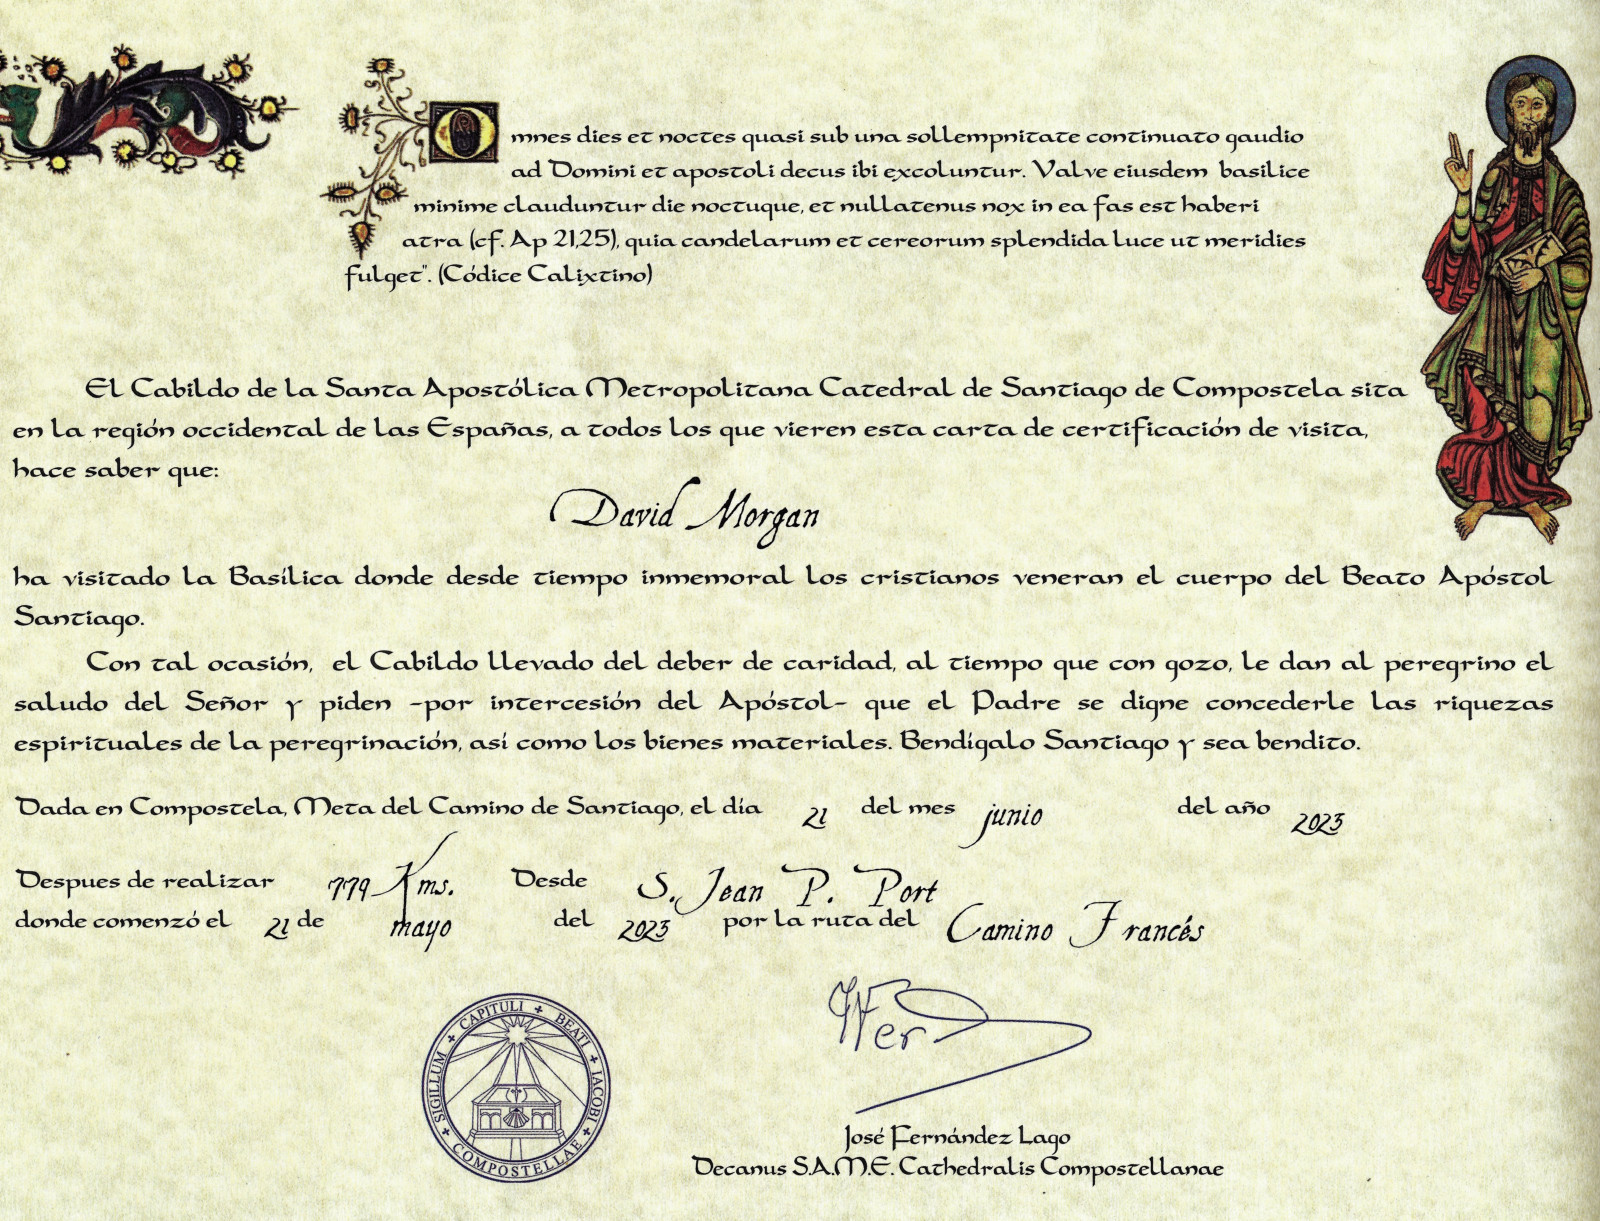 Omnes dies et noctes quasi sub una sollempnitate continuato gaudio
ad Domini et apostoli decus ibi excoluntur. Valve eiusdem basilice
minime clauduntur die noctuque, et nullatenus nox in ea fas est haberi
atra (cf. Ap 21,25), quia candelarum et cereorum splendida luce ut meridies
fulget". (Códice Calixtino)
El Cabildo de la Santa Apostólica Metropolitana Catedral de Santiago de Compostela sita
en la región occidental de las Españas, a todos los que vieren esta carta de certificación de visita,
hace saber que:
David Morgan
ha visitado la Basílica donde desde tiempo inmemoral los cristianos veneran el cuerpo del Beato Apóstol
Santiago.
Con tal ocasión, el Cabildo llevado del deber de caridad, al tiempo que con gozo, le dan al peregrino el
saludo del Señor y piden -por intercesión del Apóstol- que el Padre se digne concederle las riquezas
espirituales de la peregrinación, así como los bienes materiales. Bendígalo Santiago y sea bendito.
Dada en Compostela, Meta del Camino de Santiago, el día 21 del mes junio del año 2023
Despues de realizar 779 Kms. Desde S. Jean P. Port
donde comenzó el 21 de mayo del 2023 por la ruta del Camino Francés
SIGILLUM + CAPITULI + BEATI + IACOBI + COMPOSTELLAE +
José Fernández Lago
Decanus S.A.M.E. Cathedralis Compostellanae